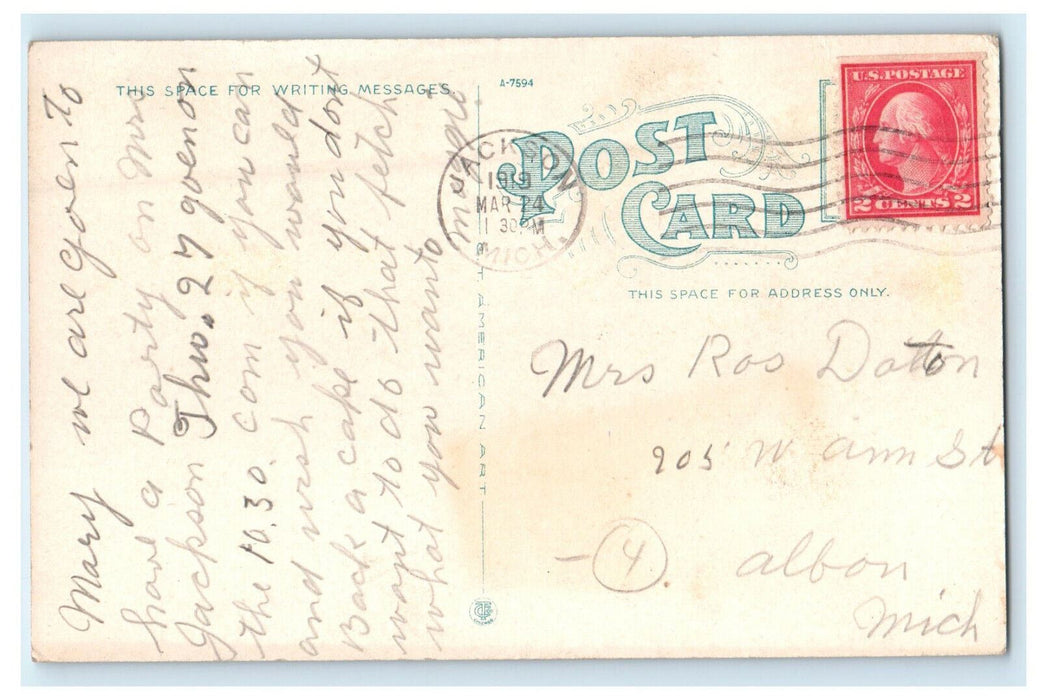 THIS SPACE FOR WRITING MESSAGES.
A-7594
POST
CARD
THIS SPACE FOR ADDRESS ONLY.
U.S. POSTAGE
2 CENTS 2
JACKSON
1919
MAR 24
1 30 PM
MICH.
Mary we are goven to
have a Party on Mrs
Jackson Thu. 27 goven on
the 10.30. com if you can
and wish you would
Back a cake if you dont
want to do that fetch
what you want to
Magie
Mrs Ros Datton
905 W ann St
- 4
albon
Mich
AMERICAN ART